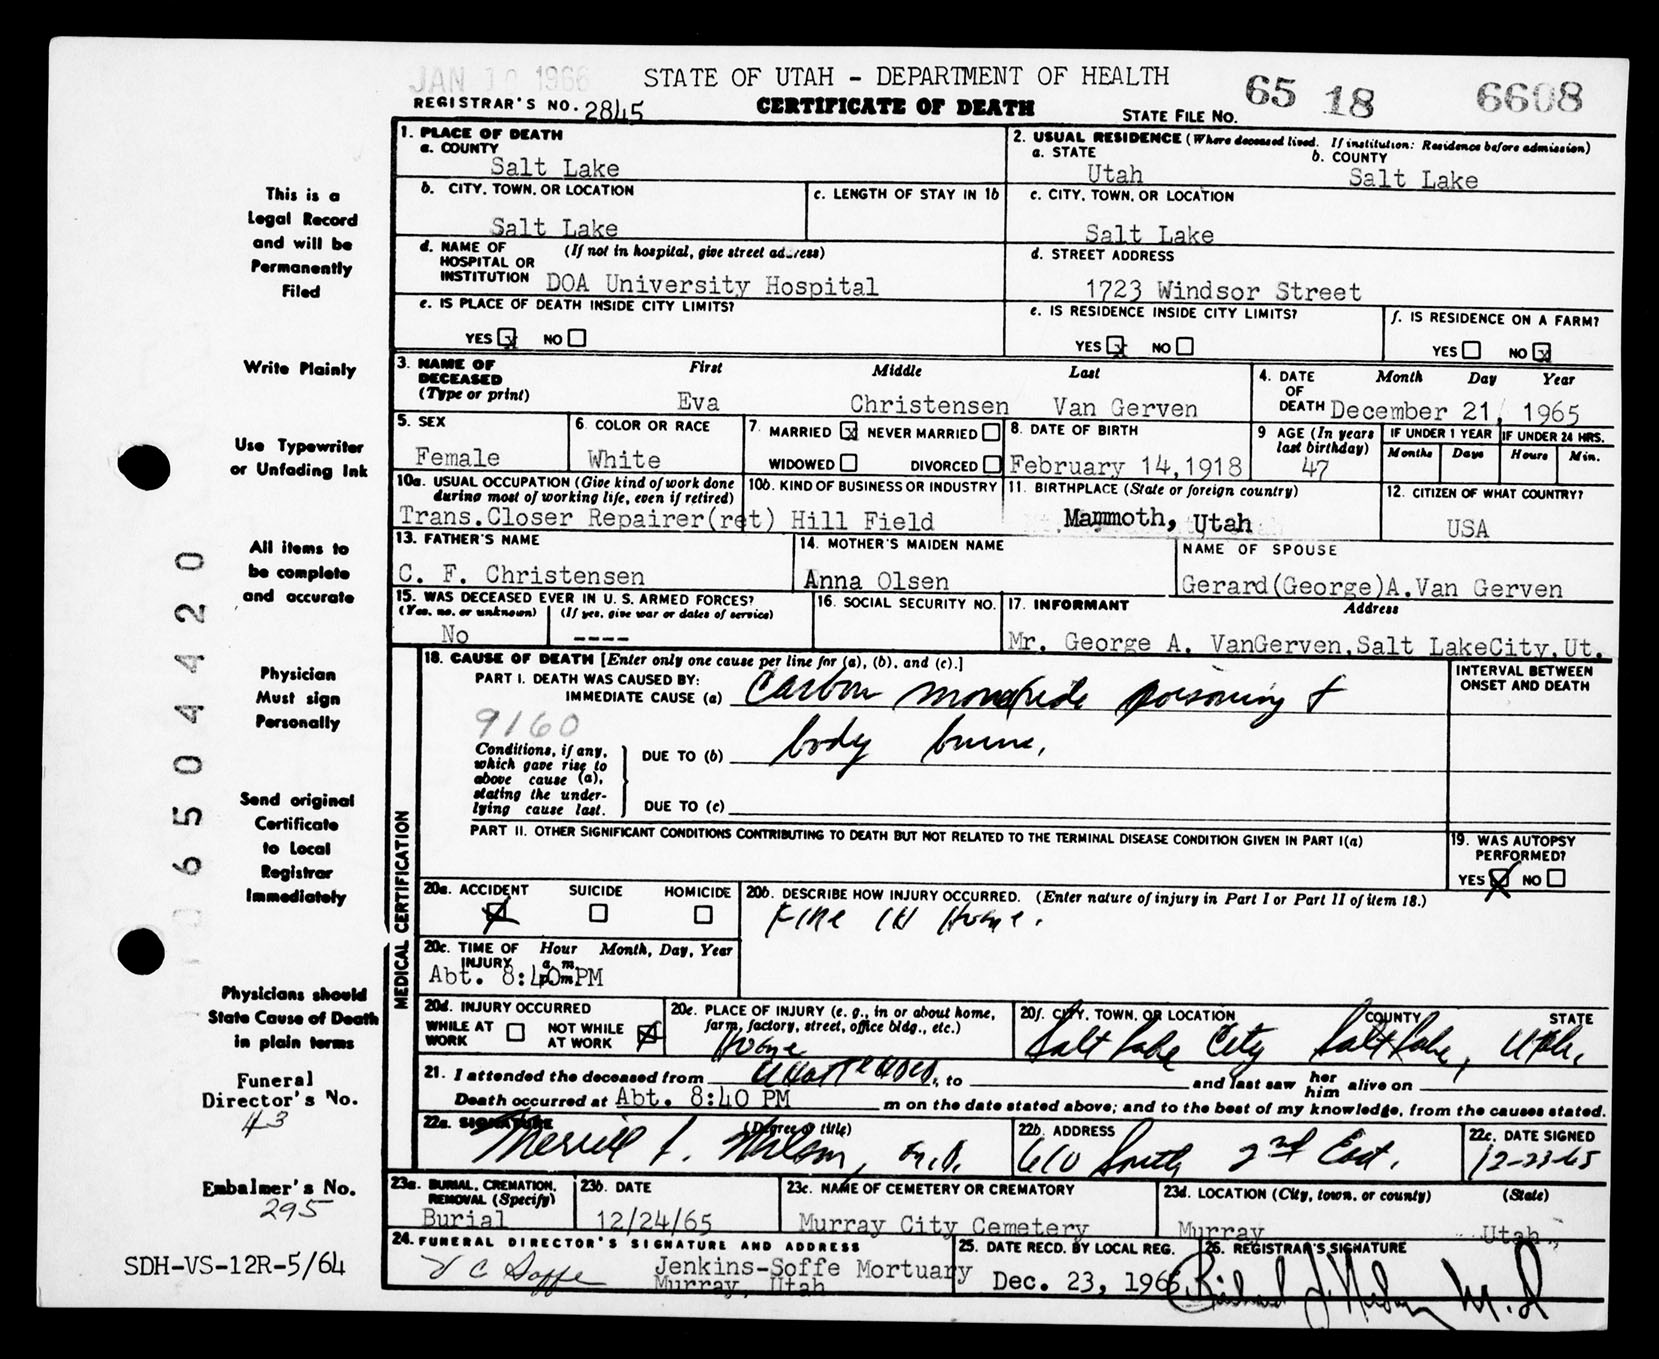 JAN 10 1966
STATE OF UTAH - DEPARTMENT OF HEALTH
65 18 6608
REGISTRAR'S NO. 2845
CERTIFICATE OF DEATH
STATE FILE NO.
1. PLACE OF DEATH
a. COUNTY
Salt Lake
2. USUAL RESIDENCE (Where deceased lived. If institution: Residence before admission)
a. STATE b. COUNTY
Utah Salt Lake
b. CITY, TOWN, OR LOCATION
Salt Lake
c. LENGTH OF STAY IN 1b
c. CITY, TOWN, OR LOCATION
Salt Lake
d. NAME OF HOSPITAL OR INSTITUTION (If not in hospital, give street address)
DOA University Hospital
d. STREET ADDRESS
1723 Windsor Street
e. IS PLACE OF DEATH INSIDE CITY LIMITS?
YES x NO
e. IS RESIDENCE INSIDE CITY LIMITS?
YES x NO
f. IS RESIDENCE ON A FARM?
YES NO x
3. NAME OF DECEASED (Type or print)
First Middle Last
Eva Christensen Van Gerven
4. DATE OF DEATH Month Day Year
December 21, 1965
5. SEX
Female
6. COLOR OR RACE
White
7. MARRIED x NEVER MARRIED
WIDOWED DIVORCED
8. DATE OF BIRTH
February 14,1918
9 AGE (In years last birthday)
47
IF UNDER 1 YEAR IF UNDER 24 HRS.
Months Days Hours Min.
10a. USUAL OCCUPATION (Give kind of work done during most of working life, even if retired)
Trans.Closer Repairer(ret)
10b. KIND OF BUSINESS OR INDUSTRY
Hill Field
11. BIRTHPLACE (State or foreign country)
Mammoth, Utah
12. CITIZEN OF WHAT COUNTRY?
USA
13. FATHER'S NAME
C. F. Christensen
14. MOTHER'S MAIDEN NAME
Anna Olsen
NAME OF SPOUSE
Gerard(George)A.Van Gerven
15. WAS DECEASED EVER IN U.S. ARMED FORCES?
(Yes, no, or unknown) (If yes, give war or dates of service)
No ----
16. SOCIAL SECURITY NO.
17. INFORMANT Address
Mr. George A. VanGerven,Salt LakeCity,Ut.
18. CAUSE OF DEATH [Enter only one cause per line for (a), (b), and (c).]
PART I. DEATH WAS CAUSED BY:
IMMEDIATE CAUSE (a) Carbon monoxide poisoning &
9160
Conditions, if any, which gave rise to above cause (a), stating the underlying cause last.
DUE TO (b) body burns.
DUE TO (c)
INTERVAL BETWEEN ONSET AND DEATH
PART II. OTHER SIGNIFICANT CONDITIONS CONTRIBUTING TO DEATH BUT NOT RELATED TO THE TERMINAL DISEASE CONDITION GIVEN IN PART I(a)
19. WAS AUTOPSY PERFORMED?
YES X NO
20a. ACCIDENT SUICIDE HOMICIDE
X
20b. DESCRIBE HOW INJURY OCCURRED. (Enter nature of injury in Part I or Part II of item 18.)
Fire in Home.
20c. TIME OF INJURY Hour Month, Day, Year
a. m.
p. m.
Abt. 8:40 PM
20d. INJURY OCCURRED
WHILE AT WORK NOT WHILE AT WORK X
20e. PLACE OF INJURY (e. g., in or about home, farm, factory, street, office bldg., etc.)
Home
20f. CITY, TOWN, OR LOCATION COUNTY STATE
Salt Lake City Salt Lake, Utah.
21. I attended the deceased from unattended, to and last saw her him alive on
Death occurred at Abt. 8:40 PM m on the date stated above; and to the best of my knowledge, from the causes stated.
22a. SIGNATURE (Degree or title)
Merrill L. Wilson, M.D.
22b. ADDRESS
610 South 2nd East.
22c. DATE SIGNED
12-23-65
23a. BURIAL, CREMATION, REMOVAL (Specify)
Burial
23b. DATE
12/24/65
23c. NAME OF CEMETERY OR CREMATORY
Murray City Cemetery
23d. LOCATION (City, town, or county) (State)
Murray Utah
24. FUNERAL DIRECTOR'S SIGNATURE AND ADDRESS
V C Soffe
Jenkins-Soffe Mortuary
Murray, Utah
25. DATE RECD. BY LOCAL REG.
Dec. 23, 1965
26. REGISTRAR'S SIGNATURE
M.D
MEDICAL CERTIFICATION
This is a
Legal Record
and will be
Permanently
Filed
Write Plainly
Use Typewriter
or Unfading Ink
All items to
be complete
and accurate
Physician
Must sign
Personally
Send original
Certificate
to Local
Registrar
Immediately
Physicians should
State Cause of Death
in plain terms
Funeral
Director's No.
43
Embalmer's No.
295
SDH-VS-12R-5/64
6504420